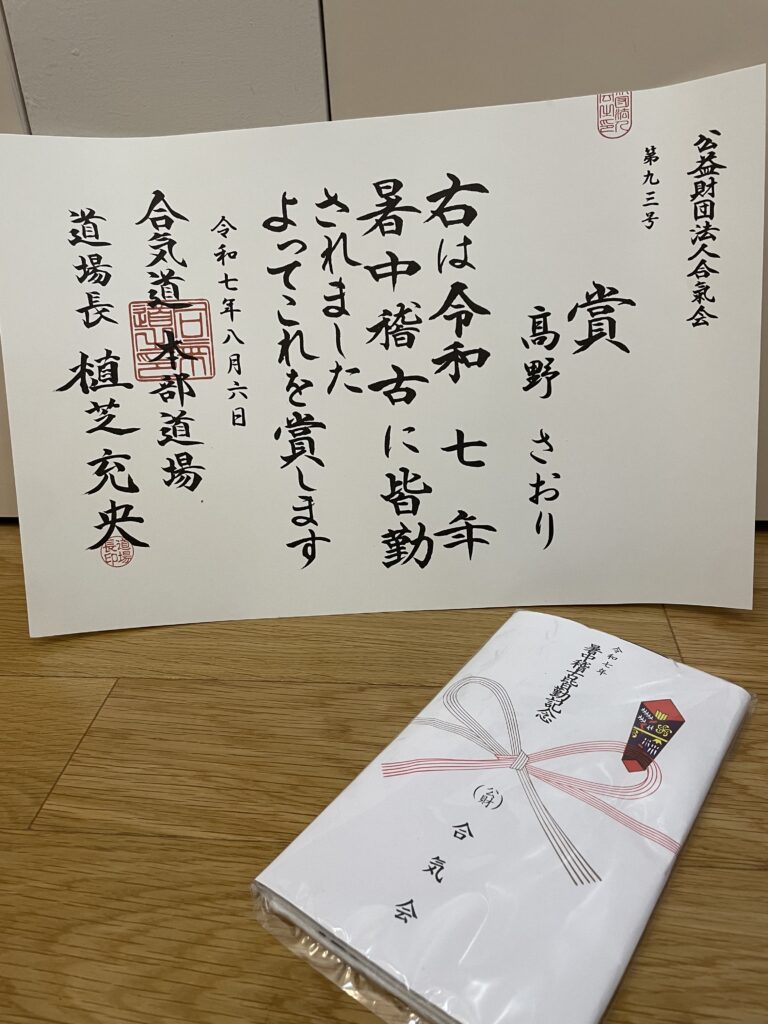 公益財団法人合氣会
第九三号
賞
髙野 さおり
右は令和 七 年
暑中稽古に皆勤
されました
よってこれを賞します
令和七年八月六日
合気道 本部道場
道場長 植芝充央
道場
長印
令和七年
暑中稽古皆勤記念
(公財)
合気会